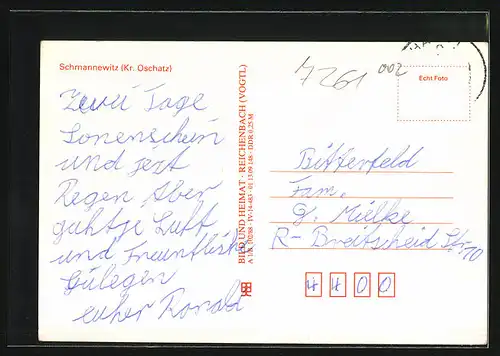 Schmannewitz (Kr. Oschatz)
Zewei Tage
Sonenschein
und jezt
Regen Aber
guhtge Luft
und Freuntlisch
Gülegen
euher Ronald
BILD UND HEIMAT · REICHENBACH (VOGTL)
A 1/B 170/88 · IV-14-483 · 01 13 09 148 · DDR 0,25 M
7261 002
Echt Foto
Bitterfeld
Fam.
G. Mielke
R- Breitscheid Str. 10
4 4 0 0